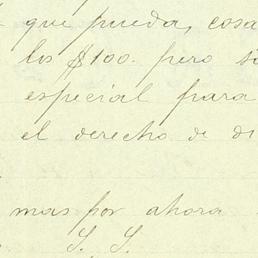 que pueda, cosa
los $100. pero si
especial para
el derecho de di
mas por ahora
S. S.